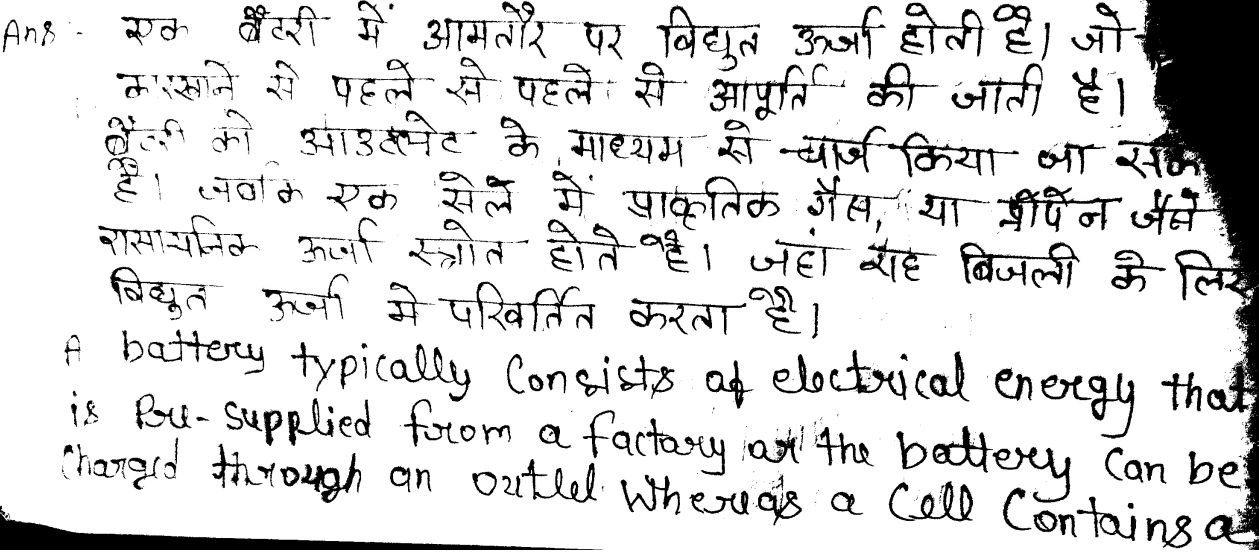 Ans - एक बैटरी में आमतौर पर विद्युत ऊर्जा होती है। जो
कारखाने से पहले से पहले से आपूर्ति की जाती है।
बैटरी को आउटलेट के माध्यम से चार्ज किया जा सक
है। जबकि एक सेल में प्राकृतिक गैस, या प्रोपेन जैसे
रासायनिक ऊर्जा स्त्रोत होते है। जहां यह बिजली के लिए
विद्युत ऊर्जा मे परिवर्तित करता है।
A battery typically Consists of electrical energy that
is Pre-supplied from a factory or the battery Can be
Charged through an outlet Whereas a Cell Contains a